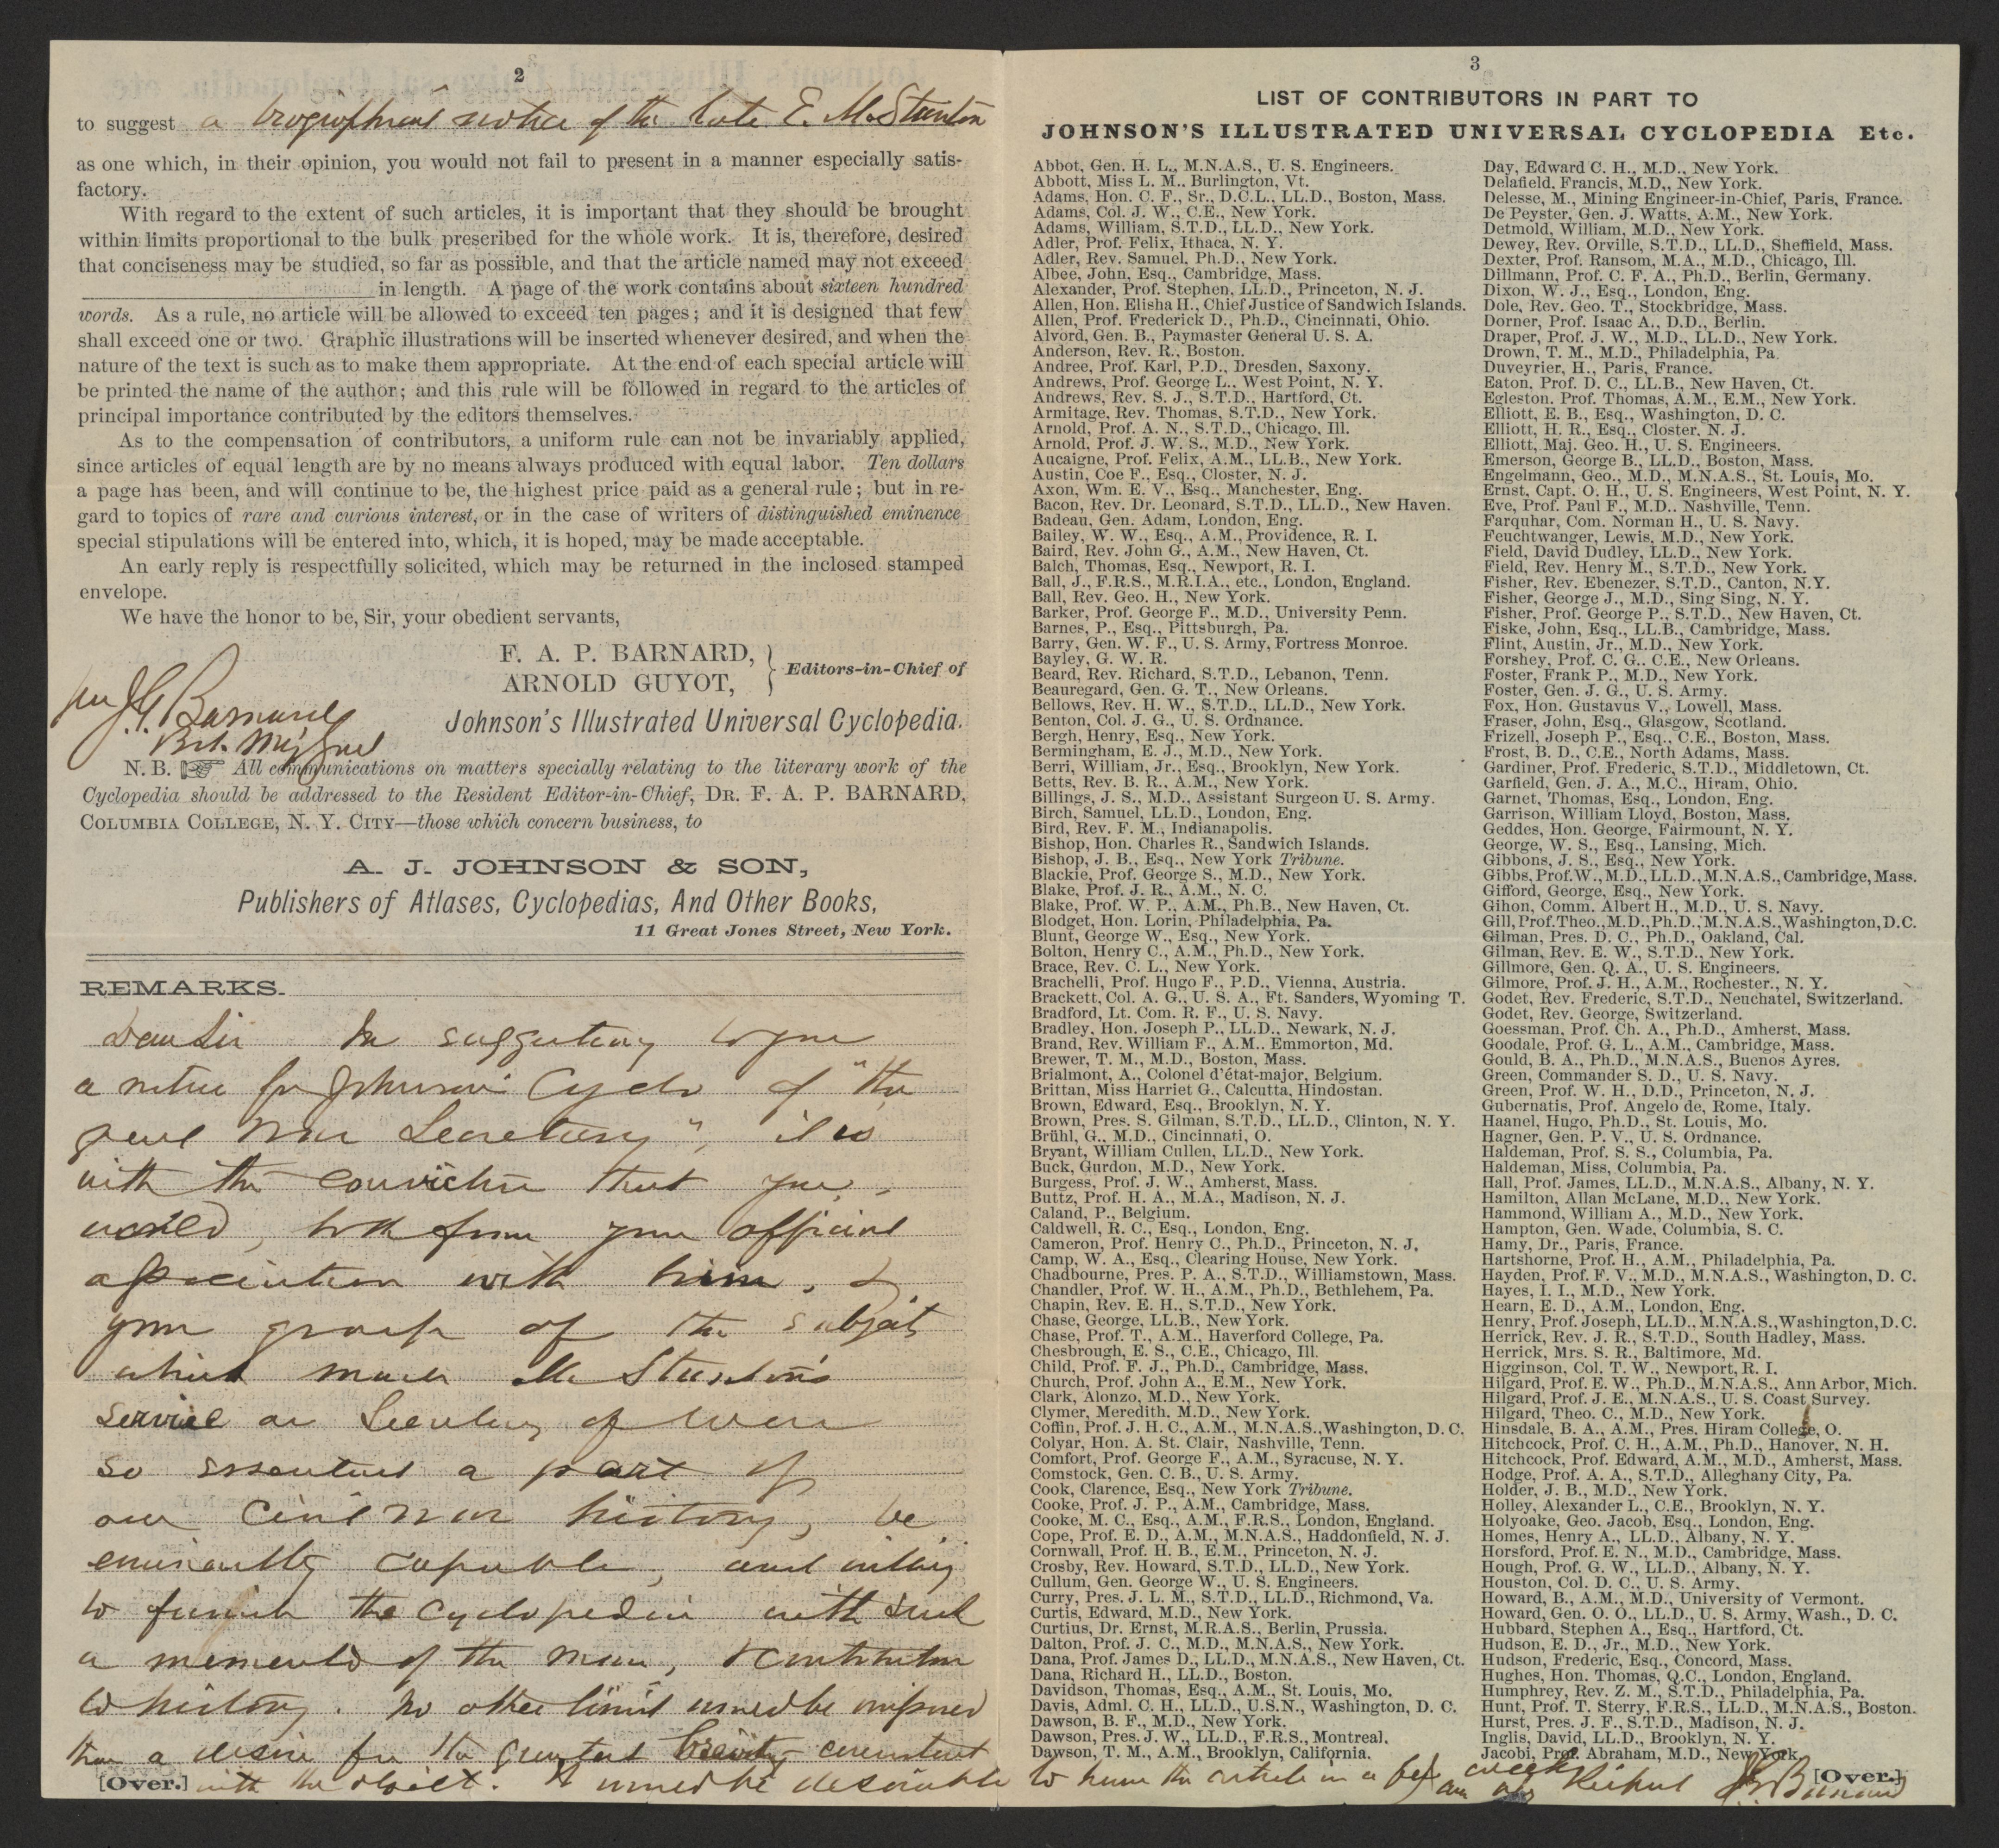 2
to suggest a biographical notice of the late E. M. Stanton
as one which, in their opinion, you would not fail to present in a manner especially satis-
factory.
With regard to the extent of such articles, it is important that they should be brought
within limits proportional to the bulk prescribed for the whole work. It is, therefore, desired
that conciseness may be studied, so far as possible, and that the article named may not exceed
in length. A page of the work contains about sixteen hundred
words. As a rule, no article will be allowed to exceed ten pages; and it is designed that few
shall exceed one or two. Graphic illustrations will be inserted whenever desired, and when the
nature of the text is such as to make them appropriate. At the end of each special article will
be printed the name of the author; and this rule will be followed in regard to the articles of
principal importance contributed by the editors themselves.
As to the compensation of contributors, a uniform rule can not be invariably applied,
since articles of equal length are by no means always produced with equal labor. Ten dollars
a page has been, and will continue to be, the highest price paid as a general rule; but in re-
gard to topics of rare and curious interest, or in the case of writers of distinguished eminence
special stipulations will be entered into, which, it is hoped, may be made acceptable.
An early reply is respectfully solicited, which may be returned in the inclosed stamped
envelope.
We have the honor to be, Sir, your obedient servants,
F. A. P. BARNARD,
ARNOLD GUYOT,
Editors-in-Chief of
Johnson's Illustrated Universal Cyclopedia.
per J. G. Barnard
Bvt. Maj Genel
N. B. ☞ All communications on matters specially relating to the literary work of the
Cyclopedia should be addressed to the Resident Editor-in-Chief, DR. F. A. P. BARNARD,
COLUMBIA COLLEGE, N. Y. CITY—those which concern business, to
A. J. JOHNSON & SON,
Publishers of Atlases, Cyclopedias, And Other Books,
11 Great Jones Street, New York.
REMARKS.
Dear Sir In suggesting to you
a notice for Johnson's Cyclo of "the
great War Secretary", it is
with the conviction that you
would, both from your official
association with him, &
your grasp of the subject
which made Mr Stanton's
service as Secretary of War
so essential a part of
our Civil War history, be
eminently capable, and willing
to furnish the Cyclopedia with such
a memento of the man, & contribution
to history. No other limit need be imposed
than a desire for the greatest brevity consistent
[Over.] with the object. It would be desirable to have the article in a few weeks
Respct J. G. Barnard
3
LIST OF CONTRIBUTORS IN PART TO
JOHNSON'S ILLUSTRATED UNIVERSAL CYCLOPEDIA Etc.
Abbot, Gen. H. L., M.N.A.S., U. S. Engineers.
Abbott, Miss L. M.. Burlington, Vt.
Adams, Hon. C. F., Sr., D.C.L., LL.D., Boston, Mass.
Adams, Col. J. W., C.E., New York.
Adams, William, S.T.D., LL.D., New York.
Adler, Prof. Felix, Ithaca, N. Y.
Adler, Rev. Samuel, Ph.D., New York.
Albee, John, Esq., Cambridge, Mass.
Alexander, Prof. Stephen, LL.D., Princeton, N. J.
Allen, Hon. Elisha H., Chief Justice of Sandwich Islands.
Allen, Prof. Frederick D., Ph.D., Cincinnati, Ohio.
Alvord, Gen. B., Paymaster General U. S. A.
Anderson, Rev. R., Boston.
Andree, Prof. Karl, P.D., Dresden, Saxony.
Andrews, Prof. George L., West Point, N. Y.
Andrews, Rev. S. J., S.T.D., Hartford, Ct.
Armitage, Rev. Thomas, S.T.D., New York.
Arnold, Prof. A. N., S.T.D., Chicago, Ill.
Arnold, Prof. J. W. S., M.D., New York.
Aucaigne, Prof. Felix, A.M., LL.B., New York.
Austin, Coe F., Esq., Closter, N. J.
Axon, Wm. E. V., Esq., Manchester, Eng.
Bacon, Rev. Dr. Leonard, S.T.D., LL.D., New Haven.
Badeau, Gen. Adam, London, Eng.
Bailey, W. W., Esq., A.M., Providence, R. I.
Baird, Rev. John G., A.M., New Haven, Ct.
Balch, Thomas, Esq., Newport, R. I.
Ball, J., F.R.S., M.R.I.A., etc., London, England.
Ball, Rev. Geo. H., New York.
Barker, Prof. George F., M.D., University Penn.
Barnes, P., Esq., Pittsburgh, Pa.
Barry, Gen. W. F., U. S. Army, Fortress Monroe.
Bayley, G. W. R.
Beard, Rev. Richard, S.T.D., Lebanon, Tenn.
Beauregard, Gen. G. T., New Orleans.
Bellows, Rev. H. W., S.T.D., LL.D., New York.
Benton, Col. J. G., U. S. Ordnance.
Bergh, Henry, Esq., New York.
Bermingham, E. J., M.D., New York.
Berri, William, Jr., Esq., Brooklyn, New York.
Betts, Rev. B. R., A.M., New York.
Billings, J. S., M.D., Assistant Surgeon U. S. Army.
Birch, Samuel, LL.D., London, Eng.
Bird, Rev. F. M., Indianapolis.
Bishop, Hon. Charles R., Sandwich Islands.
Bishop, J. B., Esq., New York Tribune.
Blackie, Prof. George S., M.D., New York.
Blake, Prof. J. R., A.M., N. C.
Blake, Prof. W. P., A.M., Ph.B., New Haven, Ct.
Blodget, Hon. Lorin, Philadelphia, Pa.
Blunt, George W., Esq., New York.
Bolton, Henry C., A.M., Ph.D., New York.
Brace, Rev. C. L., New York.
Brachelli, Prof. Hugo F., P.D., Vienna, Austria.
Brackett, Col. A. G., U. S. A., Ft. Sanders, Wyoming T.
Bradford, Lt. Com. R. F., U. S. Navy.
Bradley, Hon. Joseph P., LL.D., Newark, N. J.
Brand, Rev. William F., A.M.. Emmorton, Md.
Brewer, T. M., M.D., Boston, Mass.
Brialmont, A., Colonel d'état-major, Belgium.
Brittan, Miss Harriet G., Calcutta, Hindostan.
Brown, Edward, Esq., Brooklyn, N. Y.
Brown, Pres. S. Gilman, S.T.D., LL.D., Clinton, N. Y.
Brühl, G., M.D., Cincinnati, O.
Bryant, William Cullen, LL.D., New York.
Buck, Gurdon, M.D., New York.
Burgess, Prof. J. W., Amherst, Mass.
Buttz, Prof. H. A., M.A., Madison, N. J.
Caland, P., Belgium.
Caldwell, R. C., Esq., London, Eng.
Cameron, Prof. Henry C., Ph.D., Princeton, N. J.
Camp, W. A., Esq., Clearing House, New York.
Chadbourne, Pres. P. A., S.T.D., Williamstown, Mass.
Chandler, Prof. W. H., A.M., Ph.D., Bethlehem, Pa.
Chapin, Rev. E. H., S.T.D., New York.
Chase, George, LL.B., New York.
Chase, Prof. T., A.M., Haverford College, Pa.
Chesbrough, E. S., C.E., Chicago, Ill.
Child, Prof. F. J., Ph.D., Cambridge, Mass.
Church, Prof. John A., E.M., New York.
Clark, Alonzo, M.D., New York.
Clymer, Meredith. M.D., New York.
Coffin, Prof. J. H. C., A.M., M.N.A.S., Washington, D. C.
Colyar, Hon. A. St. Clair, Nashville, Tenn.
Comfort, Prof. George F., A.M., Syracuse, N. Y.
Comstock, Gen. C. B., U. S. Army.
Cook, Clarence, Esq., New York Tribune.
Cooke, Prof. J. P., A.M., Cambridge, Mass.
Cooke, M. C., Esq., A.M., F.R.S., London, England.
Cope, Prof. E. D., A.M., M.N.A.S., Haddonfield, N. J.
Cornwall, Prof. H. B., E.M., Princeton, N. J.
Crosby, Rev. Howard, S.T.D., LL.D., New York.
Cullum, Gen. George W., U. S. Engineers.
Curry, Pres. J. L. M., S.T.D., LL.D., Richmond, Va.
Curtis, Edward, M.D., New York.
Curtius, Dr. Ernst, M.R.A.S., Berlin, Prussia.
Dalton, Prof. J. C., M.D., M.N.A.S., New York.
Dana, Prof. James D., LL.D., M.N.A.S., New Haven, Ct.
Dana, Richard H., LL.D., Boston.
Davidson, Thomas, Esq., A.M., St. Louis, Mo.
Davis, Adml. C. H., LL.D., U.S.N., Washington, D. C.
Dawson, B. F., M.D., New York.
Dawson, Pres. J. W., LL.D., F.R.S., Montreal.
Dawson, T. M., A.M., Brooklyn, California.
Day, Edward C. H., M.D., New York.
Delafield, Francis, M.D., New York.
Delesse, M., Mining Engineer-in-Chief, Paris, France.
De Peyster, Gen. J. Watts, A.M., New York.
Detmold, William, M.D., New York.
Dewey, Rev. Orville, S.T.D., LL.D., Sheffield, Mass.
Dexter, Prof. Ransom, M.A., M.D., Chicago, Ill.
Dillmann, Prof. C. F. A., Ph.D., Berlin, Germany.
Dixon, W. J., Esq., London, Eng.
Dole, Rev. Geo. T., Stockbridge, Mass.
Dorner, Prof. Isaac A., D.D., Berlin.
Draper, Prof. J. W., M.D., LL.D., New York.
Drown, T. M., M.D., Philadelphia, Pa.
Duveyrier, H., Paris, France.
Eaton, Prof. D. C., LL.B., New Haven, Ct.
Egleston. Prof. Thomas, A.M., E.M., New York.
Elliott, E. B., Esq., Washington, D. C.
Elliott, H. R., Esq., Closter, N. J.
Elliott, Maj. Geo. H., U. S. Engineers.
Emerson, George B., LL.D., Boston, Mass.
Engelmann, Geo., M.D., M.N.A.S., St. Louis, Mo.
Ernst, Capt. O. H., U. S. Engineers, West Point, N. Y.
Eve, Prof. Paul F., M.D.. Nashville, Tenn.
Farquhar, Com. Norman H., U. S. Navy.
Feuchtwanger, Lewis, M.D., New York.
Field, David Dudley, LL.D., New York.
Field, Rev. Henry M., S.T.D., New York.
Fisher, Rev. Ebenezer, S.T.D., Canton, N.Y.
Fisher, George J., M.D., Sing Sing, N. Y.
Fisher, Prof. George P., S.T.D., New Haven, Ct.
Fiske, John, Esq., LL.B., Cambridge, Mass.
Flint, Austin, Jr., M.D., New York.
Forshey, Prof. C. G.. C.E., New Orleans.
Foster, Frank P., M.D., New York.
Foster, Gen. J. G., U. S. Army.
Fox, Hon. Gustavus V., Lowell, Mass.
Fraser, John, Esq., Glasgow, Scotland.
Frizell, Joseph P., Esq., C.E., Boston, Mass.
Frost, B. D., C.E., North Adams, Mass.
Gardiner, Prof. Frederic, S.T.D., Middletown, Ct.
Garfield, Gen. J. A., M.C., Hiram, Ohio.
Garnet, Thomas, Esq., London, Eng.
Garrison, William Lloyd, Boston, Mass.
Geddes, Hon. George, Fairmount, N. Y.
George, W. S., Esq., Lansing, Mich.
Gibbons, J. S., Esq., New York.
Gibbs, Prof. W., M.D., LL.D., M.N.A.S., Cambridge, Mass.
Gifford, George, Esq., New York.
Gihon, Comm. Albert H., M.D., U. S. Navy.
Gill, Prof. Theo., M.D., Ph.D., M.N.A.S., Washington, D.C.
Gilman, Pres. D. C., Ph.D., Oakland, Cal.
Gilman, Rev. E. W., S.T.D., New York.
Gillmore, Gen. Q. A., U. S. Engineers.
Gilmore, Prof. J. H., A.M., Rochester., N. Y.
Godet, Rev. Frederic, S.T.D., Neuchatel, Switzerland.
Godet, Rev. George, Switzerland.
Goessman, Prof. Ch. A., Ph.D., Amherst, Mass.
Goodale, Prof. G. L., A.M., Cambridge, Mass.
Gould, B. A., Ph.D., M.N.A.S., Buenos Ayres.
Green, Commander S. D., U. S. Navy.
Green, Prof. W. H., D.D., Princeton, N. J.
Gubernatis, Prof. Angelo de, Rome, Italy.
Haanel, Hugo, Ph.D., St. Louis, Mo.
Hagner, Gen. P. V., U. S. Ordnance.
Haldeman, Prof. S. S., Columbia, Pa.
Haldeman, Miss, Columbia, Pa.
Hall, Prof. James, LL.D., M.N.A.S., Albany, N. Y.
Hamilton, Allan McLane, M.D., New York.
Hammond, William A., M.D., New York.
Hampton, Gen. Wade, Columbia, S. C.
Hamy, Dr., Paris, France.
Hartshorne, Prof. H., A.M., Philadelphia, Pa.
Hayden, Prof. F. V., M.D., M.N.A.S., Washington, D. C.
Hayes, I. I., M.D., New York.
Hearn, E. D., A.M., London, Eng.
Henry, Prof. Joseph, LL.D., M.N.A.S., Washington, D.C.
Herrick, Rev. J. R., S.T.D., South Hadley, Mass.
Herrick, Mrs. S. R., Baltimore, Md.
Higginson, Col. T. W., Newport, R. I.
Hilgard, Prof. E. W., Ph.D., M.N.A.S., Ann Arbor, Mich.
Hilgard, Prof. J. E., M.N.A.S., U. S. Coast Survey.
Hilgard, Theo. C., M.D., New York.
Hinsdale, B. A., A.M., Pres. Hiram College, O.
Hitchcock, Prof. C. H., A.M., Ph.D., Hanover, N. H.
Hitchcock, Prof. Edward, A.M., M.D., Amherst, Mass.
Hodge, Prof. A. A., S.T.D., Alleghany City, Pa.
Holder, J. B., M.D., New York.
Holley, Alexander L., C.E., Brooklyn, N. Y.
Holyoake, Geo. Jacob, Esq., London, Eng.
Homes, Henry A., LL.D., Albany, N. Y.
Horsford, Prof. E. N., M.D., Cambridge, Mass.
Hough, Prof. G. W., LL.D., Albany, N. Y.
Houston, Col. D. C., U. S. Army.
Howard, B., A.M., M.D., University of Vermont.
Howard, Gen. O. O., LL.D., U. S. Army, Wash., D. C.
Hubbard, Stephen A., Esq., Hartford, Ct.
Hudson, E. D., Jr., M.D., New York.
Hudson, Frederic, Esq., Concord, Mass.
Hughes, Hon. Thomas, Q.C., London, England.
Humphrey, Rev. Z. M., S.T.D., Philadelphia, Pa.
Hunt, Prof. T. Sterry, F.R.S., LL.D., M.N.A.S., Boston.
Hurst, Pres. J. F., S.T.D., Madison, N. J.
Inglis, David, LL.D., Brooklyn, N. Y.
Jacobi, Prof. Abraham, M.D., New York.
[Over.]